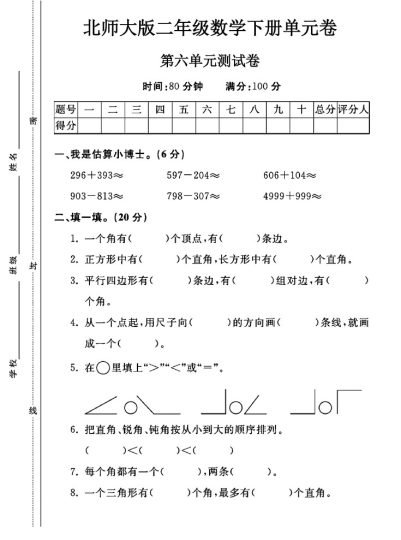 北师大版二年级数学下册单元卷
第六单元测试卷
时间:80 分钟 满分:100 分
题号 一 二 三 四 五 六 七 八 九 十 总分 评分人
得分
一、我是估算小博士。(6 分)
296+393≈ 597-204≈ 606+104≈
903-813≈ 798-307≈ 4999+999≈
二、填一填。(20 分)
1. 一个角有( )个顶点,有( )条边。
2. 正方形中有( )个直角,长方形中有( )个直角。
3. 平行四边形有( )条边,有( )组对边,有( )
个角。
4. 从一个点起,用尺子向( )的方向画( )条线,就画
成一个( )。
5. 在○里填上“>”“<”或“=”。
6. 把直角、锐角、钝角按从小到大的顺序排列。
( )<( )<( )
7. 每个角都有一个( ),两条( )。
8. 一个三角形有( )个角,最多有( )个直角。
学校 班级 姓名
线 封 密